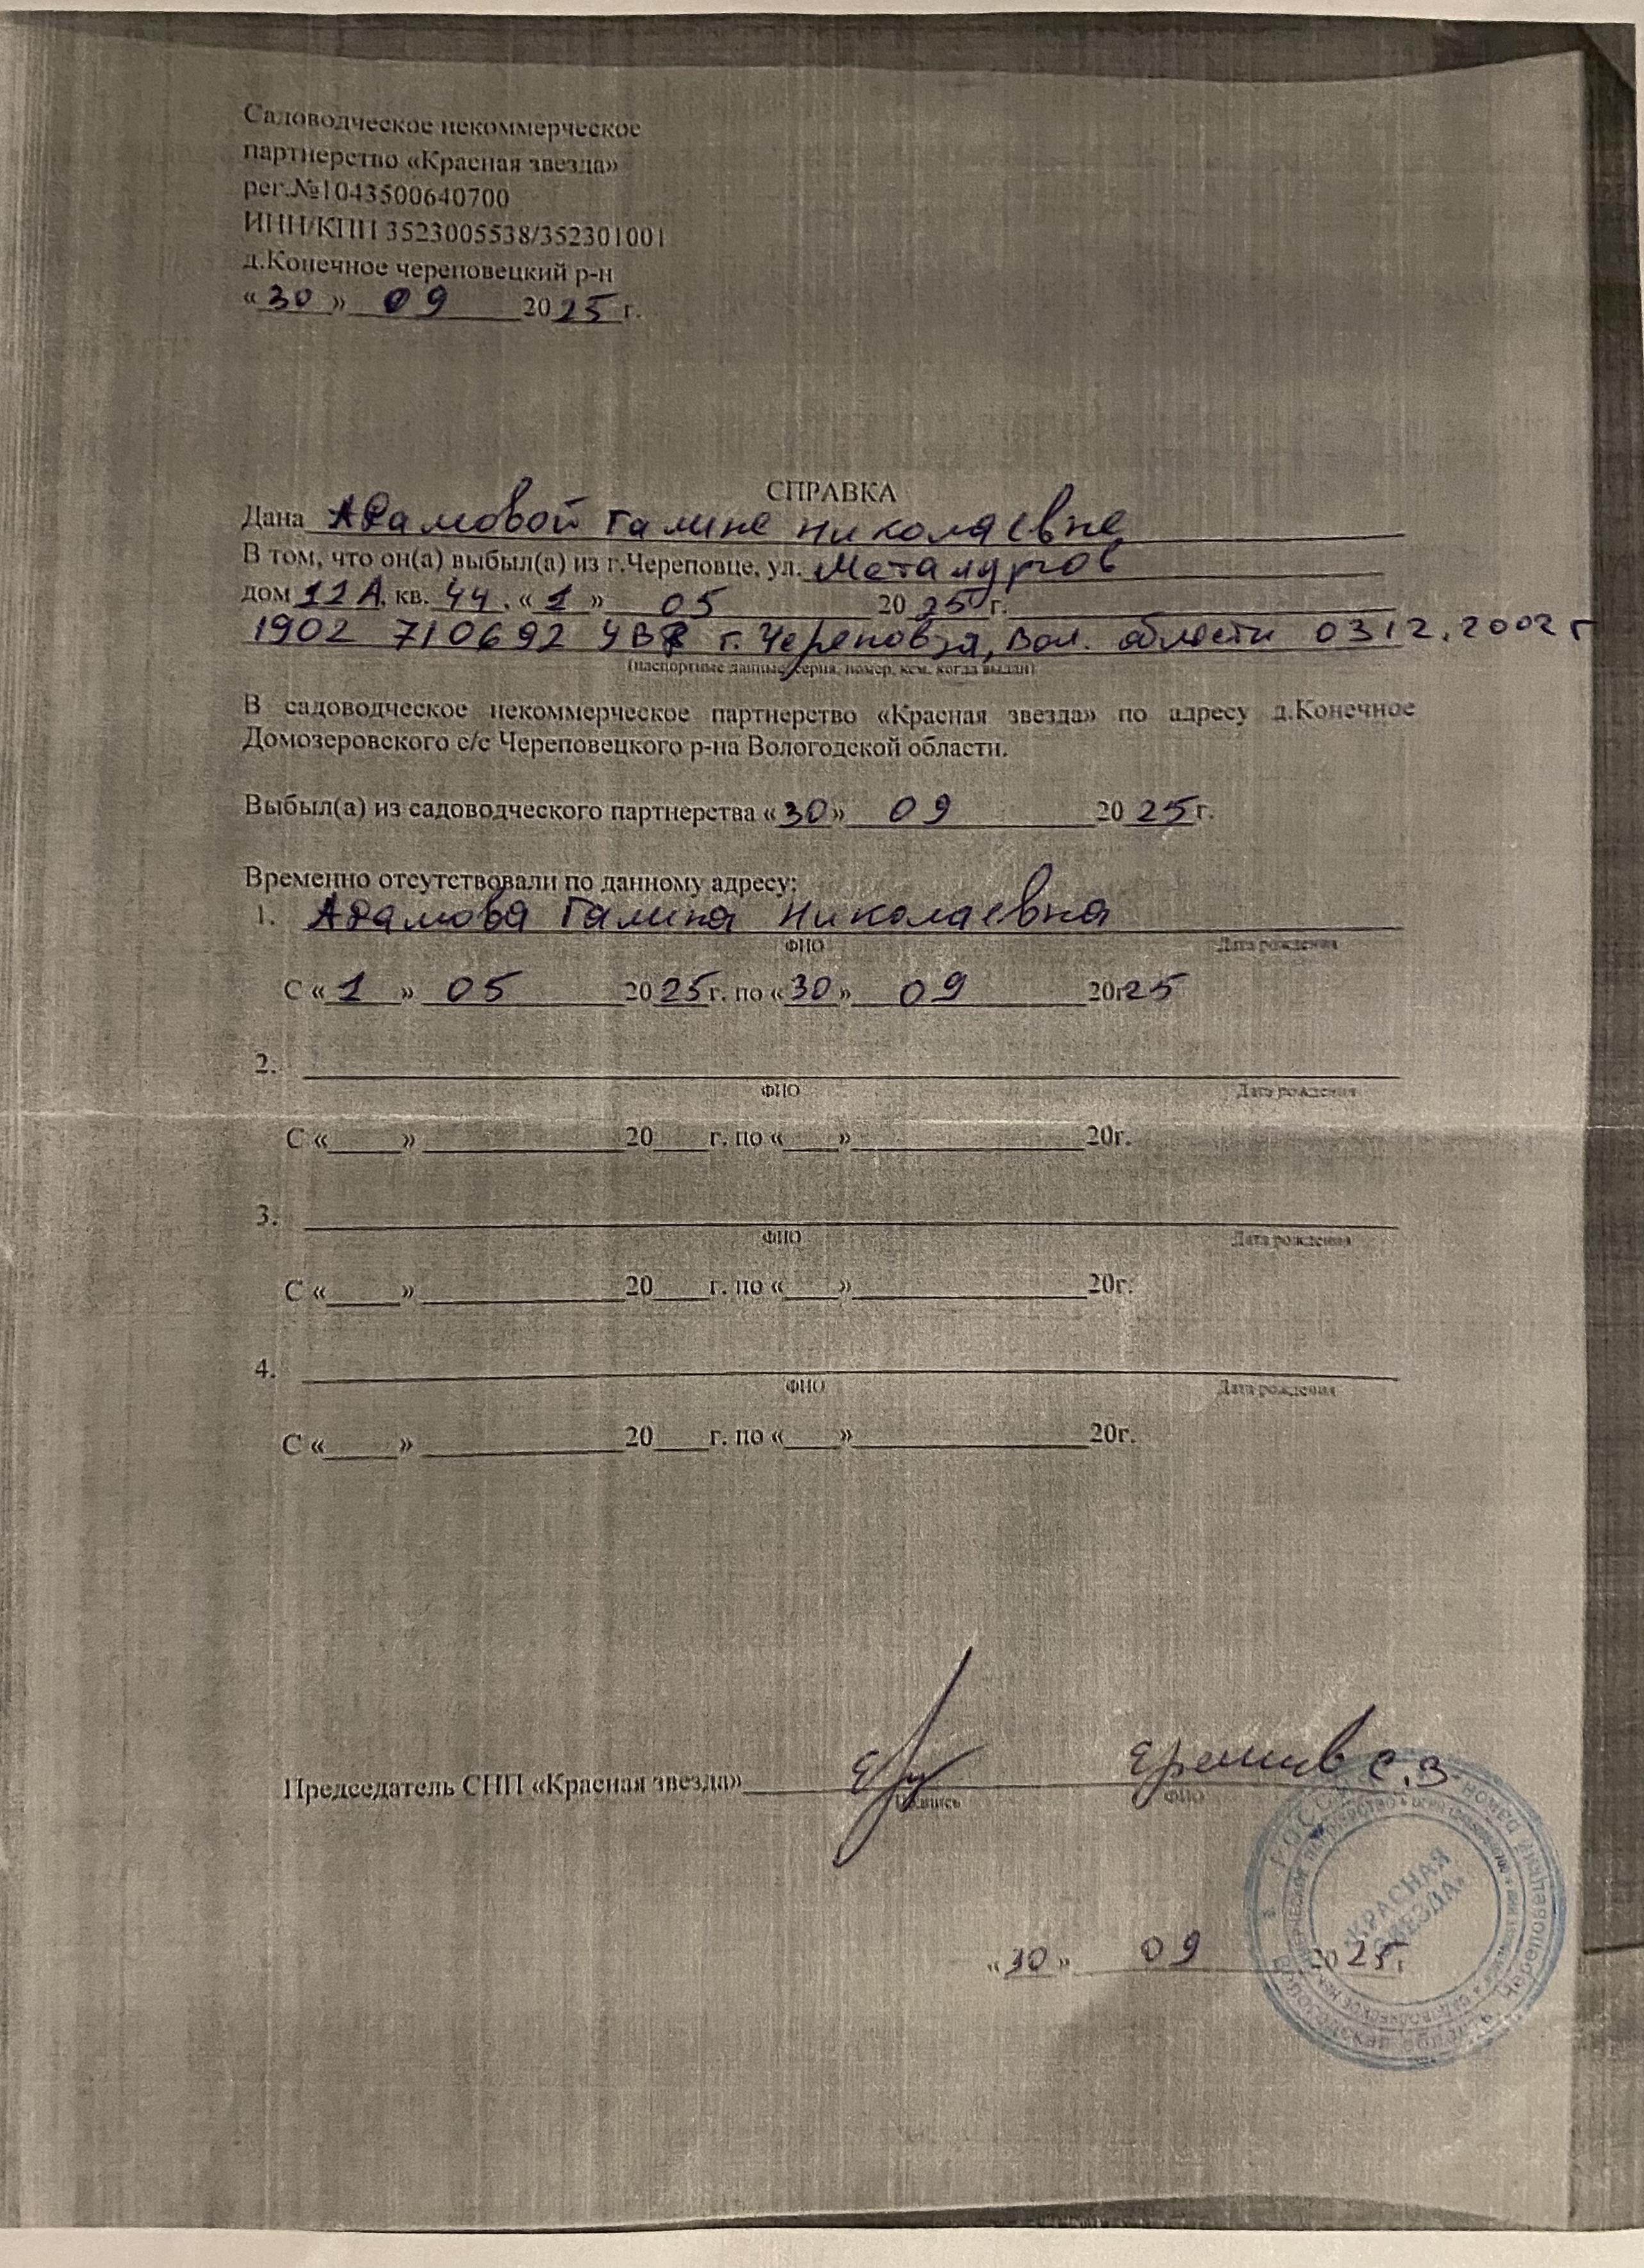 Садоводческое некоммерческое
партнерство «Красная звезда»
рег.№1043500640700
ИНН/КПП 3523005538/352301001
д.Конечное череповецкий р-н
«30» 09 2025г.
СПРАВКА
Дана Адамовой Галине Николаевне
В том, что он(а) выбыл(а) из г.Череповце, ул. Металургов
дом 11А, кв. 44. «1» 05 2025г.
1902 710692 УВД г. Череповца, Вол. области 03 12.2002 г
(паспортные данные, серия, номер, кем, когда выдан)
В садоводческое некоммерческое партнерство «Красная звезда» по адресу д.Конечное
Домозеровского с/с Череповецкого р-на Вологодской области.
Выбыл(а) из садоводческого партнерства «30» 09 2025г.
Временно отсутствовали по данному адресу:
1. Адамова Галина Николаевна
ФИО Дата рождения
С «1» 05 2025г. по «30» 09 20г.25
2.
ФИО Дата рождения
С «____» ____ 20___г. по «___» ____ 20г.
3.
ФИО Дата рождения
С «____» ____ 20___г. по «___» ____ 20г.
4.
ФИО Дата рождения
С «____» ____ 20___г. по «___» ____ 20г.
Председатель СНП «Красная звезда» С.З
Подпись ФИО
РОССИЯ
«КРАСНАЯ
ЗВЕЗДА»
«30» 09 2025г